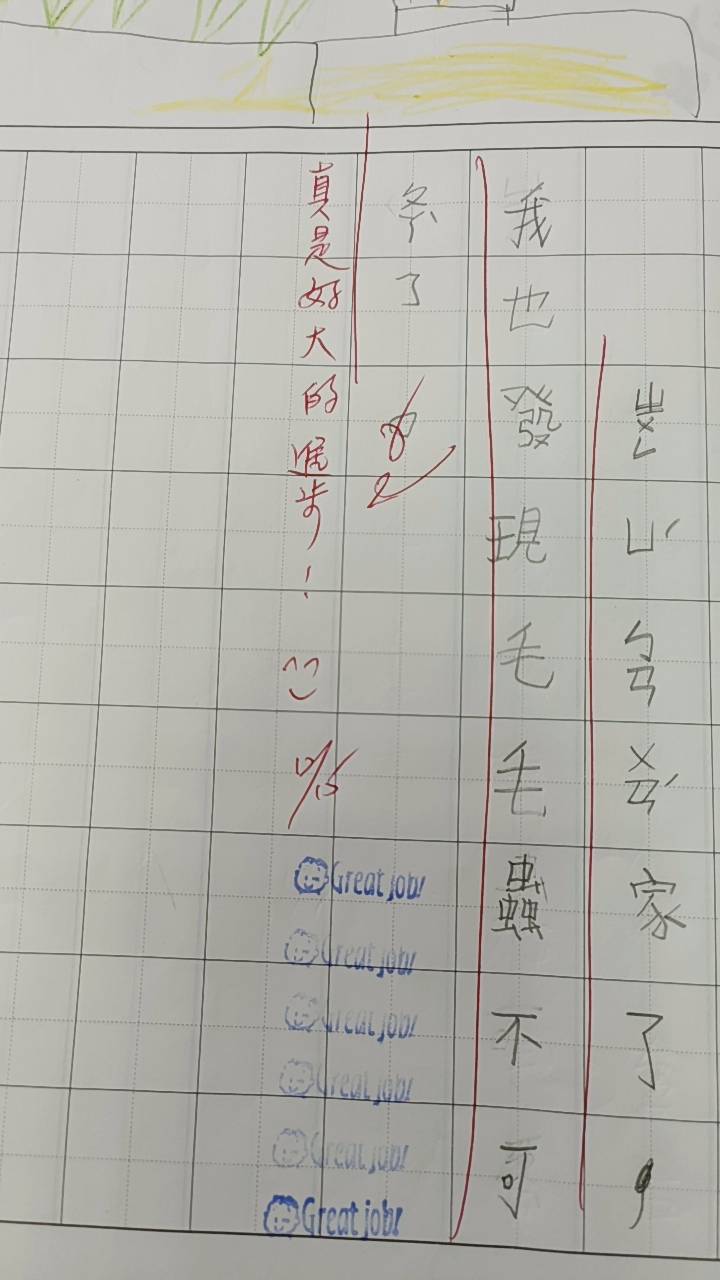 ㄓㄨㄥㄩˊㄅㄢㄨㄢˊ家了，
我也發現毛毛蟲不可
条了。
真是好大的進步！
10/15
Great job!
Great job!
Great job!
Great job!
Great job!
Great job!